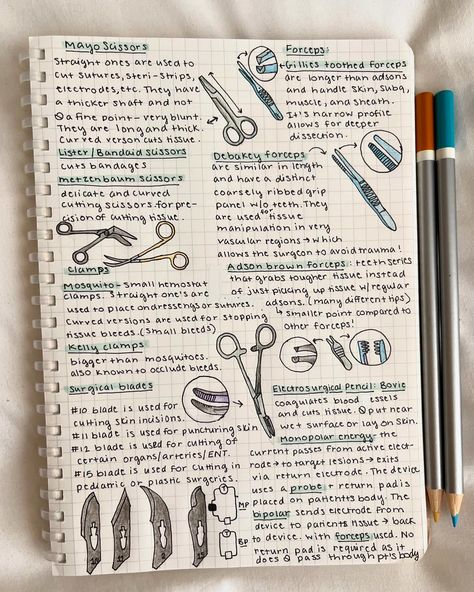 Mayo Scissors
Straight ones are used to
cut sutures, steri-strips,
electrodes, etc. They have
a thicker shaft and not
a fine point - very blunt.
They are long and thick.
Curved verson cuts tissue.
Lister/Bandaid scissors
cuts bandages
metzenbaum scissors
delicate and curved
cutting scissors for pre-
cision of cutting tissue.
Clamps
Mosquito - small hemostat
clamps. Straight one's are
used to place on dressings or sutures.
Curved versions are used for stopping
tissue bleeds. (small bleeds)
Kelly clamps
bigger than mosquitoes.
also known to occlude bleeds.
Surgical blades
#10 blade is used for
cutting skin incisions.
#11 blade is used for puncturing skin
#12 blade is used for cutting of
certain organs/arteries/ENT.
#15 blade is used for cutting in
pediatric or plastic surgeries.
10
11
12
15
MP
BP
Forceps:
Gillies toothed forceps
are longer than adsons
and handle skin, subq,
muscle, and sheath.
It's narrow profile
allows for deeper
dissection.
Debakey forceps
are similar in length
and have a distinct
coarsely ribbed grip
panel w/o teeth. They
are used for tissue
manipulation in very
vascular regions → which
allows the surgeon to avoid trauma!
Adson brown forceps: teeth series
that grabs tougher tissue instead
of just picking up tissue w/ regular
adsons. (many different tips)
↳ smaller point compared to
other forceps!
Electrosurgical pencil: Bovie
coagulates blood essels
and cuts tissue. put near
wet surface or lay on skin.
Monopolar energy - the
current passes from active elect-
rode → to target lesions → exits
via return electrode. The device
uses a probe + return pad is
placed on patients body. The
bipolar sends electrode from
device to patients tissue → back
to device. with forceps used. No
return pad is required as it
does pass through pt's body